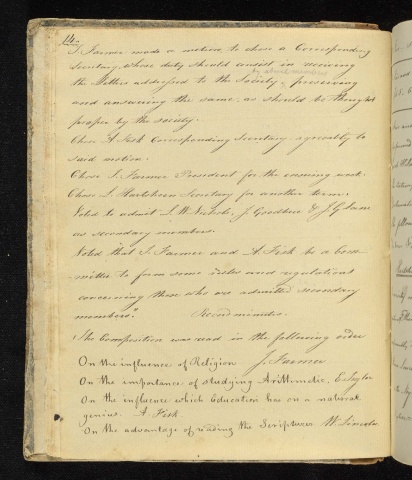 14
J. Farmer made a motion to chose a Corresponding
Secretary, whose duty should consist in receiving
by absent members
the letters addressed to the Society, preserving
and answering the same, as should be thought
proper by the society.
Chose A Fisk Corresponding Secretary agreeably to
said motion.
Chose J. Farmer President for the ensuing week.
Chose Secretary for another term.
Voted to admit J. W. Nichols, J. Goodhue & J. G. Lane
as secondary members.
Voted that J. Farmer and A. Fisk be a Com-
mittee to form some rules and regulations
concerning those who are admitted secondary
members.
The Composition was read in the following order
On the influence of Religion J. Farmer
On the importance of studying Arithmetic. E. Taylor
On the influence which Education has on a natural
genius. A Fisk
On the advantage of reading the Scriptures W. Lincoln